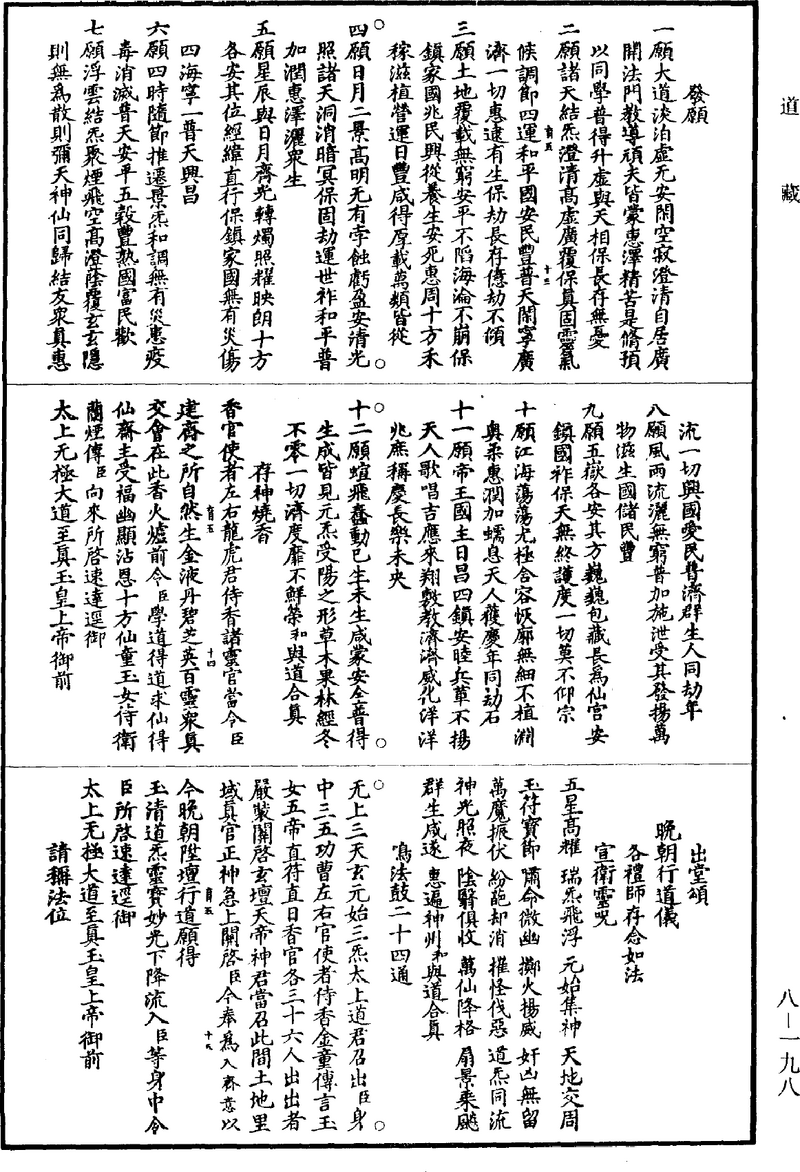 道藏
八—一九八
發願
一願大道淡泊虛无安閑空寂澄清自居廣
開法門教導頑夫皆蒙惠澤精苦是脩預
以同學普得升虛與天相保長存無憂
二願諸天結炁澄清高虛廣覆保真固靈氣
候調節四運和平國安民豐普天閑寧廣
濟一切惠逮有生保劫長存億劫不傾
三願土地覆載無窮安平不陷海淪不崩保
鎮家國兆民興從養生安死惠周十方禾
稼滋植營運日豐咸得厚載萬類皆從
四願日月二景高明无有孛蝕虧盈安清光
照諸天洞消暗冥保固劫運世祚和平普
加潤惠澤灑眾生
五願星辰與日月齊光轉燭照耀映朗十方
各安其位經緯直行保鎮家國無有災傷
四海寧一普天興昌
六願四時隨節推遷景炁和調無有災患疫
毒消滅普天安平五穀豐熟國富民歡
七願浮雲結炁聚煙飛空高澄蔭覆玄玄隱
則無為散則彌天神仙同歸結友眾真惠
流一切興國愛民普濟群生人同劫年
八願風雨流灑無窮普加施泄受其發揚萬
物滋生國儲民豐
九願五嶽各安其方巍巍包藏長為仙宮安
鎮國祚保天無終護度一切莫不仰宗
十願江海蕩蕩尤極含容恢廓無細不植淵
奧柔惠潤加蠕息天人獲慶年同劫石
十一願帝王國主日昌四鎮安睦兵革不揚
天人歌唱吉應來翔敷教濟濟威化洋洋
兆庶稱慶長樂未央
十二願蝖飛蠢動已生未生咸蒙安全普得
生成皆見元炁受陽之形草木果林經冬
不零一切濟度靡不鮮榮和與道合真
存神燒香
香官使者左右龍虎君侍香諸靈官當令臣
建齋之所自然生金液丹碧芝英百靈眾真
交會在此香火爐前令臣學道得道求仙得
仙齋主受福幽顯沾恩十方仙童玉女侍衛
蘭煙傳臣向來所啓速達逕御
太上无極大道至真玉皇上帝御前
出堂頌
晚朝行道儀
各禮師存念如法
宣衛靈呪
五星高耀 瑞炁飛浮 元始集神 天地交周
玉符寶節 嘯命微幽 擲火揚威 奸凶無留
萬魔振伏 紛葩却消 摧怪伐惡 道炁同流
神光照夜 陰翳俱收 萬仙降格 扇景乘飈
群生咸遂 惠遍神州 和與道合真
鳴法鼓二十四通
无上三天玄元始三炁太上道君召出臣身
中三五功曹左右官使者侍香金童傳言玉
女五帝直符直日香官各三十六人出出者
嚴裝關啓玄壇天帝神君當召此間土地里
域真官正神急上關啓臣今奉為入齋意以
今晚朝陞壇行道願得
玉清道炁靈寶妙光下降流入臣等身中令
臣所啓速達逕御
太上无極大道至真玉皇上帝御前
請稱法位